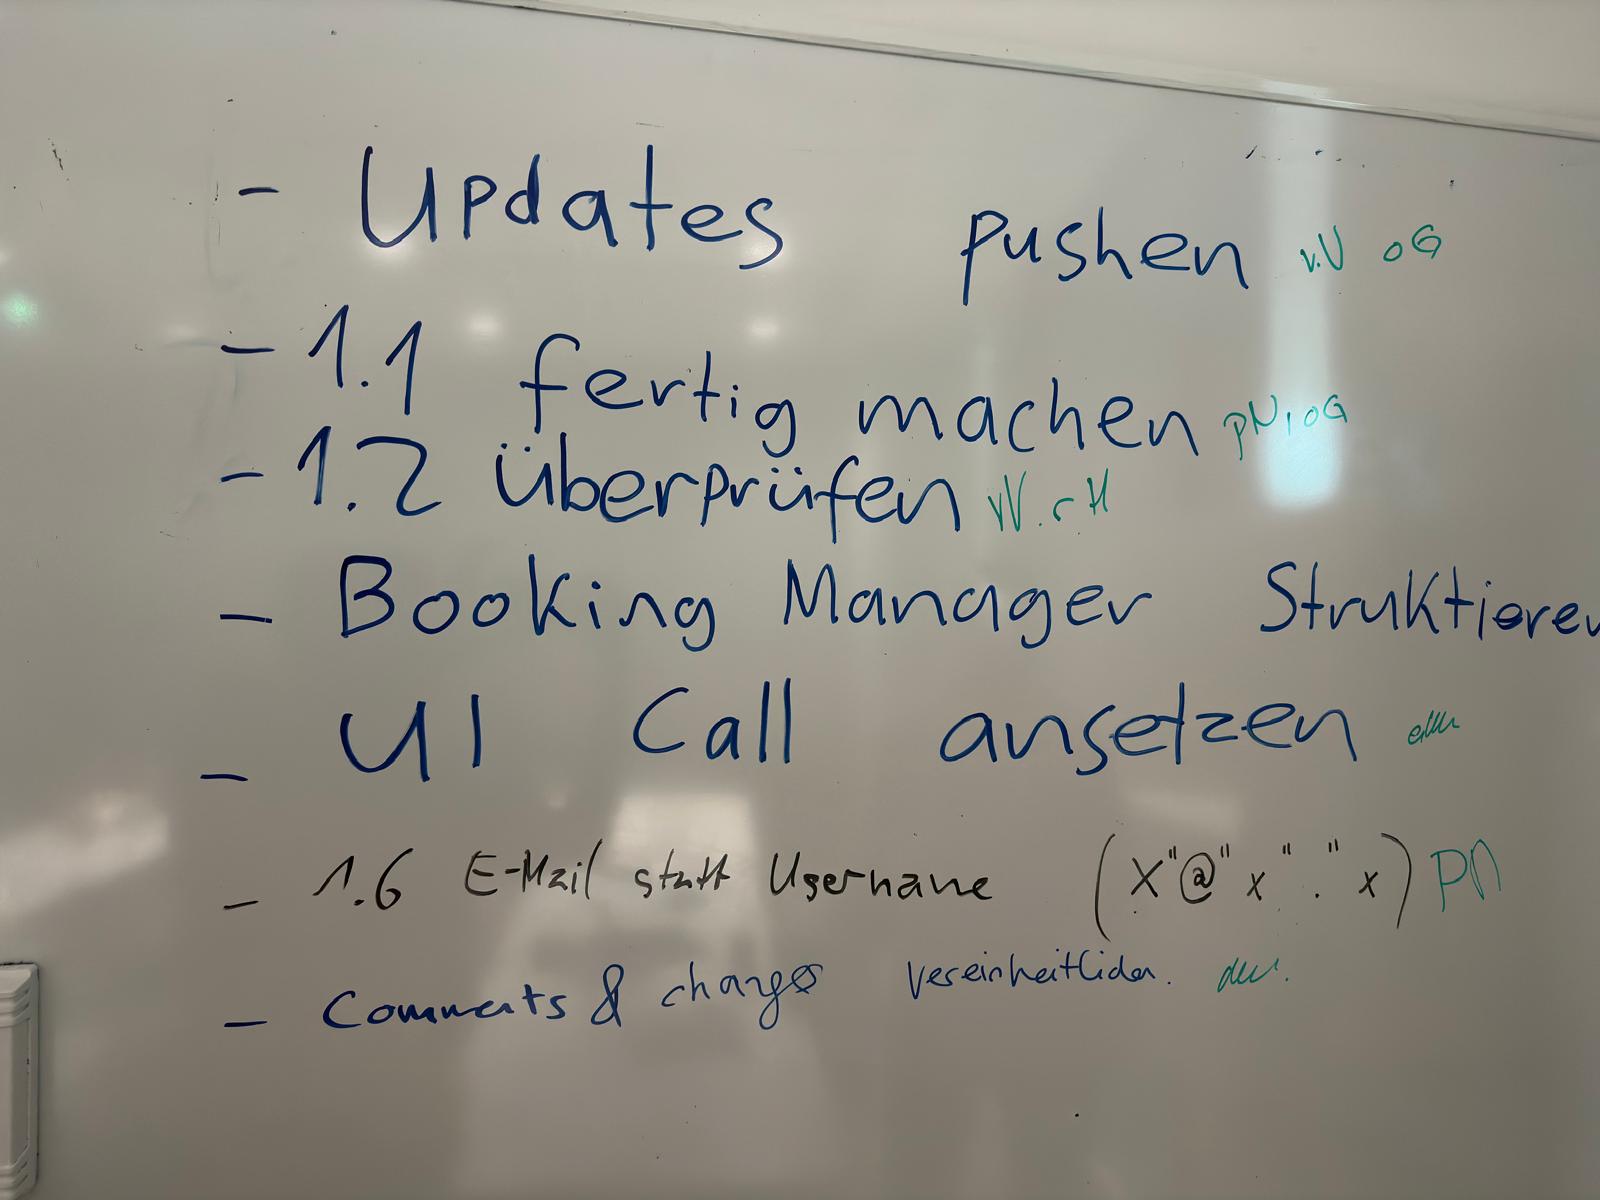 - Updates pushen v.V oG
- 1.1 fertig machen pN, oG
- 1.2 überprüfen vV. rH
- Booking Manager Struktieren
- UI Call ansetzen
- 1.6 E-Mail statt Username (X"@" x "." x) PN
- Comments & changes vereinheitlichen.